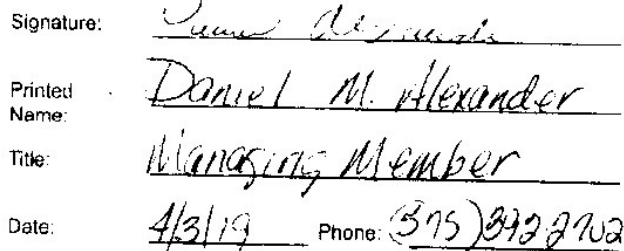 Signature:
Printed Daniel M. Alexander
Name:
Title: Managing Member
Date: 4/3/19 Phone: (575)